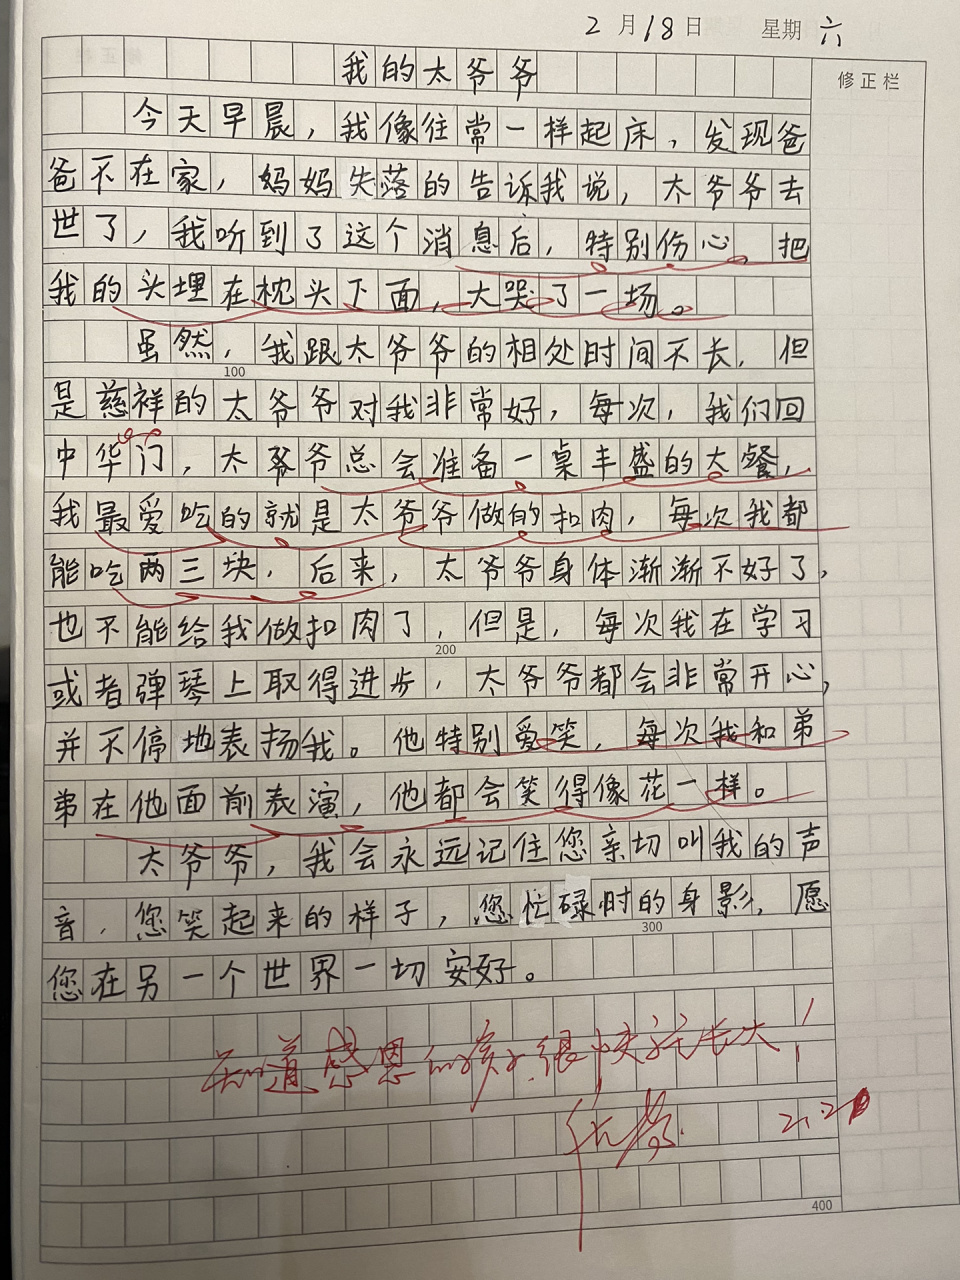 2月18日 星期六
修正栏
我的太爷爷
今天早晨，我像往常一样起床，发现爸
爸不在家，妈妈失落的告诉我说，太爷爷去
世了，我听到了这个消息后，特别伤心。把
我的头埋在枕头下面，大哭了一场。
虽然，我跟太爷爷的相处时间不长，但
100
是慈祥的太爷爷对我非常好，每次，我们回
中华门，太爷爷总会准备一桌丰盛的大餐，
我最爱吃的就是太爷爷做的扣肉，每次我都
能吃两三块，后来，太爷爷身体渐渐不好了，
也不能给我做扣肉了，但是，每次我在学习
200
或者弹琴上取得进步，太爷爷都会非常开心，
并不停地表扬我。他特别爱笑，每次我和弟
弟在他面前表演，他都会笑得像花一样。
太爷爷，我会永远记住您亲切叫我的声
音，您笑起来的样子，您忙碌时的身影，愿
300
您在另一个世界一切安好。
知道感恩的孩子,很快长大！
2.20
400